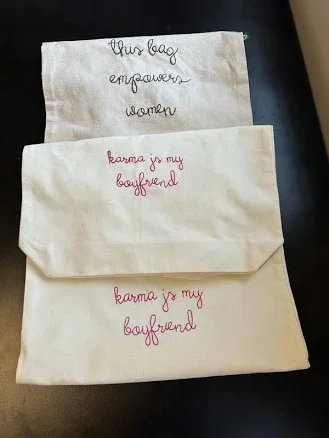 this bag
empowers
women
karma is my
boyfriend
karma is my
boyfriend